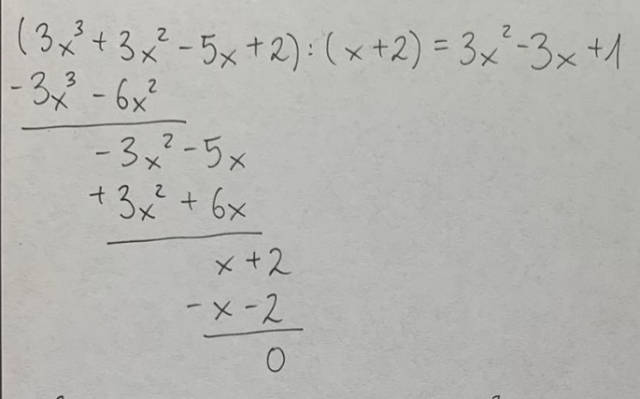 (3x³ + 3x² - 5x + 2) : (x + 2) = 3x² - 3x + 1
- 3x³ - 6x²
- 3x² - 5x
+ 3x² + 6x
x + 2
- x - 2
0